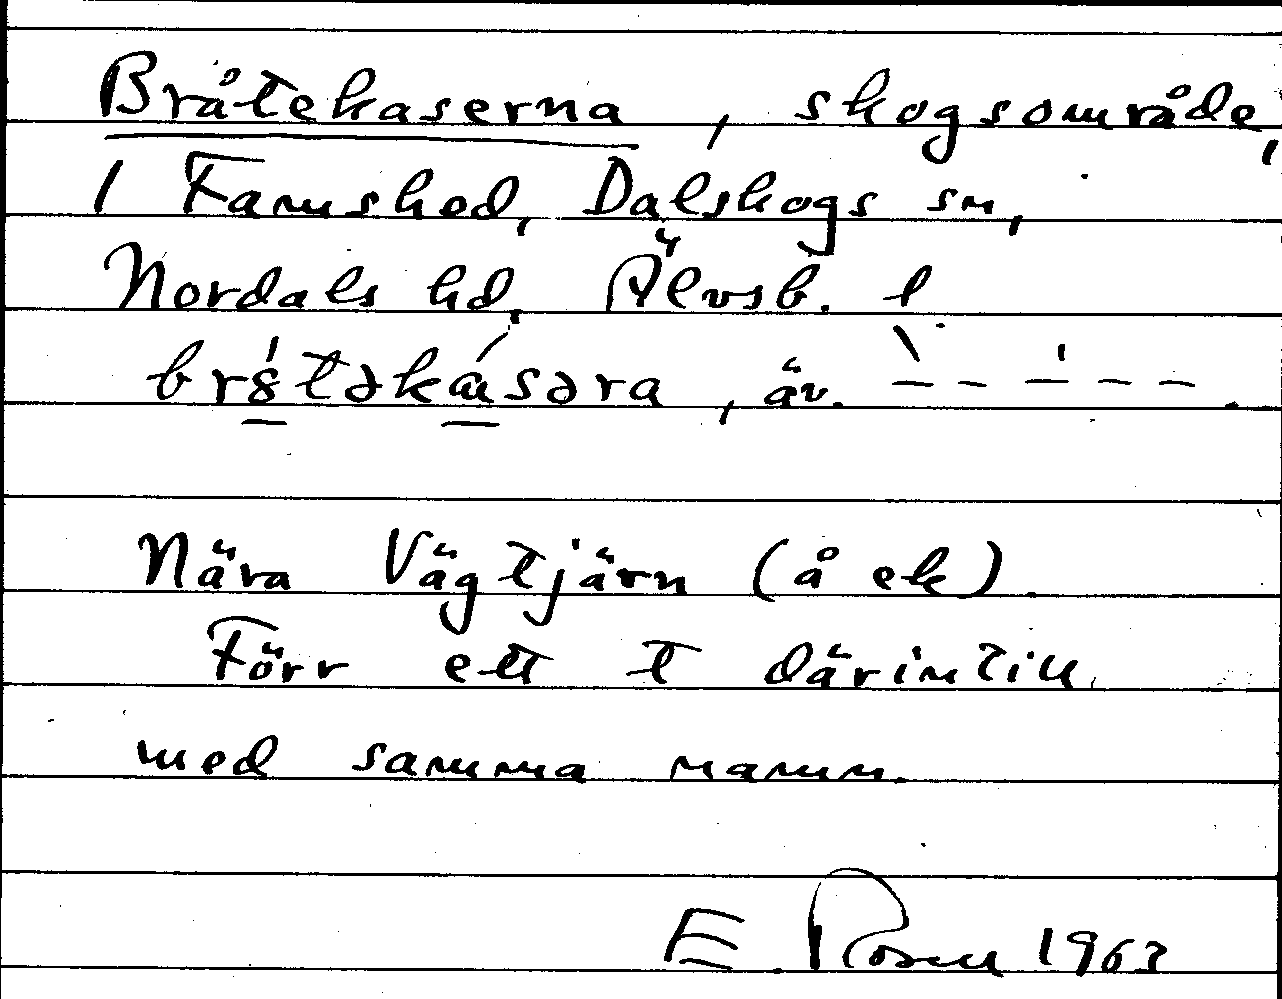 Bråtekaserna, skogsområde,
1 Famshed, Dalskogs sn,
Nordals hd, Älvsb. l
br8́tǝkásǝra, äv. – – – – –.
Nära Vägtjärn (å ek)
Förr ett t därintill
med samma namn.
E. Rosen 1963